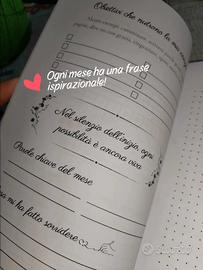 Obiettivi che nutrono la mia
Ogni mese ha una frase
ispirazionale!
Nel silenzio dell'inizio, ogni
possibilità è ancora viva
Parole chiave del mese
sa mi ha fatto sorridere